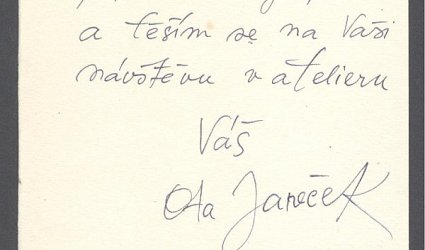 a těším se na Vaši
návštěvu v atelieru
Váš
Ota Janeček